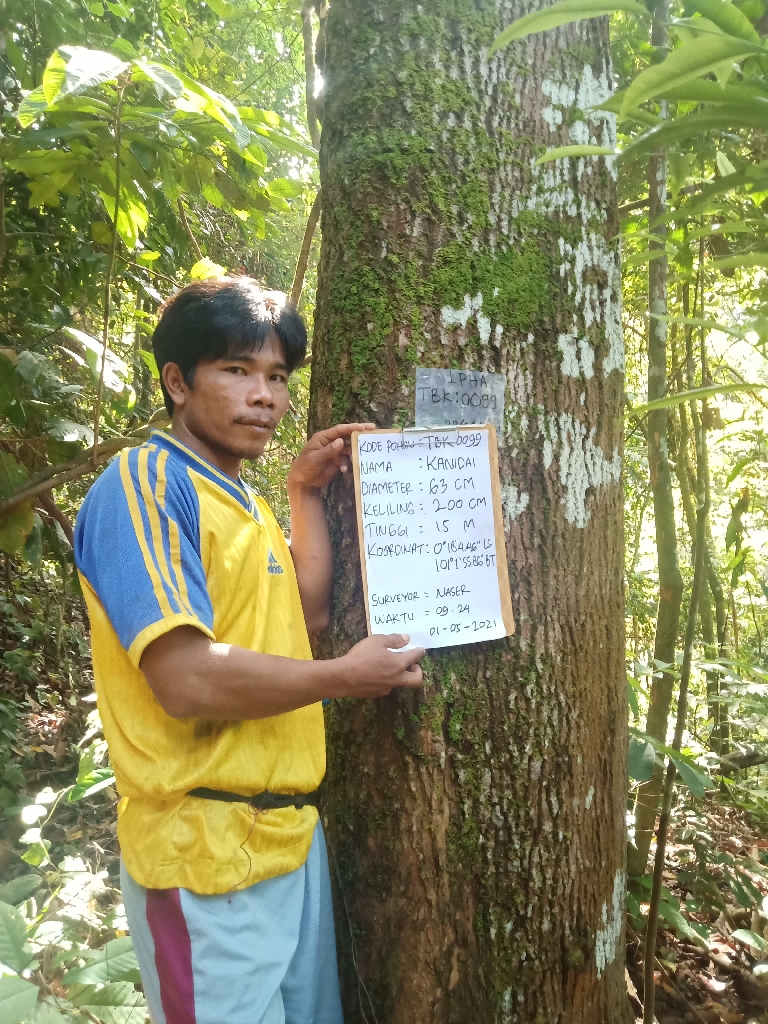 IPHA
TBK:0099
KODE POHON : TBK 0099
NAMA : KANIDAI
DIAMETER : 63 CM
KELILING : 200 CM
TINGGI : 15 M
KOORDINAT : 0°18'4.46" LS
101°1'55.86" BT
SURVEYOR = NASER
WAKTU = 09.24
01-05-2021